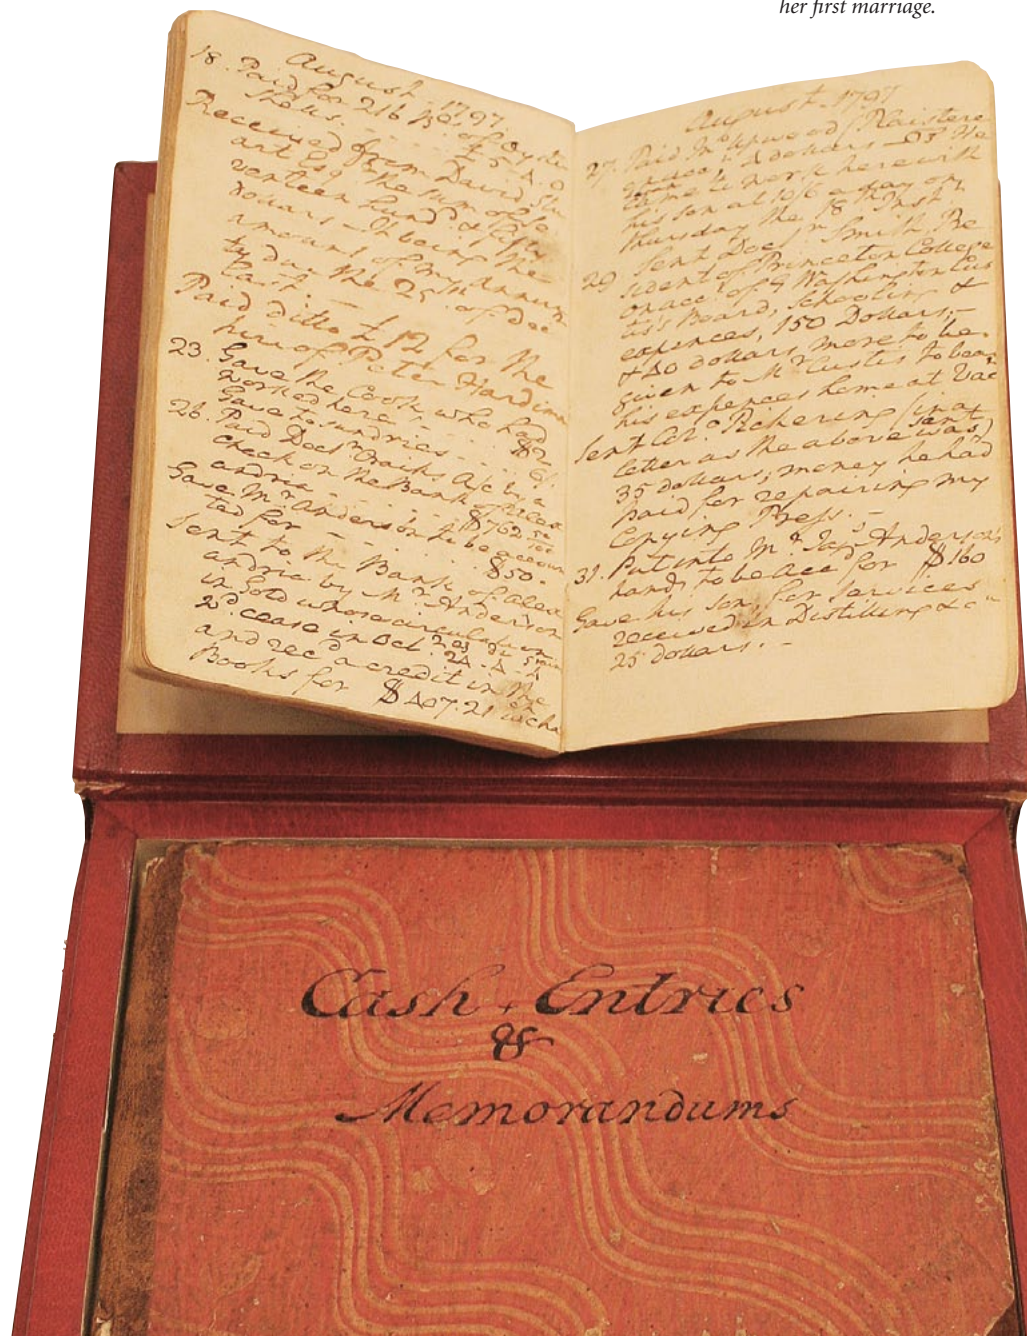 her first marriage.
August. 1797.
18. Paid for 216 of Oy
shells.
Received from David Stu
art Esqr the sum of se
venteen hund & fifty
dollars - It being the
amount of my annuity
due the 25 of Dec
last.
Paid ditto £12 for the
hire of Peter Hardiman
23. Gave the Cook, who had
worked here $2
Gave to sundries 6.
26. Paid Doctr Craiks Acc by a
check on the Bank of Alex
andria $762
Gave Mr Anderson to be accoun
ted for $50.
Sent to the Bank of Alex
andria by Mr Anderson
in Gold whose circulation
cease in Octr
and recd a credit in the
Books for $407.21
August. 1797
27. Paid Upwood (Plaisterer
4 dollars
came to work here with
his son at 10/6 a day on
Thursday the 18 Inst.
29 Sent Docr Smith, Pre
sident of Princeton College
on acct of G Washington Cus
tis's Board, Schooling &
expences, 150 Dollars,
& 40 dollars more to be
given to Mr Custis to bear
his expences home at Vac
Sent Colo Pickering (in a
letter as the above was sent)
35 dollars; money he had
paid for repairing my
Copying Press. -
31. Put into Mr Jas Anderson's
hands to be acc for $160
Gave his son for services
received in Distilling &c
25 dollars. -
Cash Entries
&
Memorandums